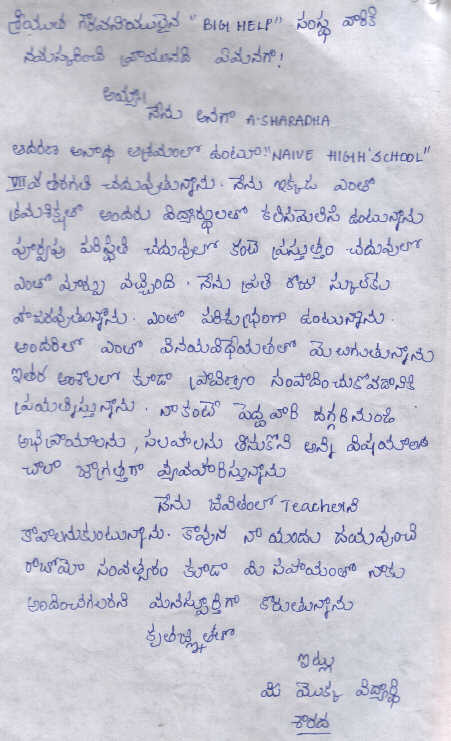 శ్రీయుత గౌరవనీయులైన "BIGH HELP" సంస్థ వారికి
నమస్కరించి వ్రాయునది ఏమనగా!
అయ్యా!
నేను అనగా A.SHARADHA
ఆదరణ అనాథ ఆశ్రమంలో ఉంటూ "NAIVE HIGH SCHOOL"
VII వ తరగతి చదువుతున్నాను. నేను ఇక్కడ ఎంతో
క్రమశిక్షతో అందరు విద్యార్థులతో కలిసిమెలిసి ఉంటున్నాను
పూర్వపు పరిస్థితి చదువులో కంటె ప్రస్తుత్తం చదువులో
ఎంతో మార్పు వచ్చింది. నేను ప్రతి రోజు స్కూల్‌కు
హాజరవుతున్నాను. ఎంతో పరిశుభ్రంగా ఉంటున్నాను.
అందరితో ఎంతో వినయవిధేయతలతో మెలుగుతున్నాను
ఇతర అంశాలలో కూడా ప్రావీణ్యం సంపాదించుకోవడానికి
ప్రయత్నిస్తున్నాను. నాకంటే పెద్ద వారి దగ్గరినుండి
అభిప్రాయాలను, సలహాలను తీసుకొని అన్ని విషయాలలో
చాలా జాగ్రత్తగా వ్యవహరిస్తున్నాను
నేను జీవితంలో Teacherని
కావాలనుకుంటున్నాను. కావున నా యందు దయవుంచి
రాబోయే సంవత్సరం కూడా మీ సహాయంతో నాకు
అందించగలరని మనస్ఫూర్తిగా కోరుతున్నాను
కృతజ్ఞతలతో
ఇట్లు
మీ యొక్క విద్యార్థి
శారద